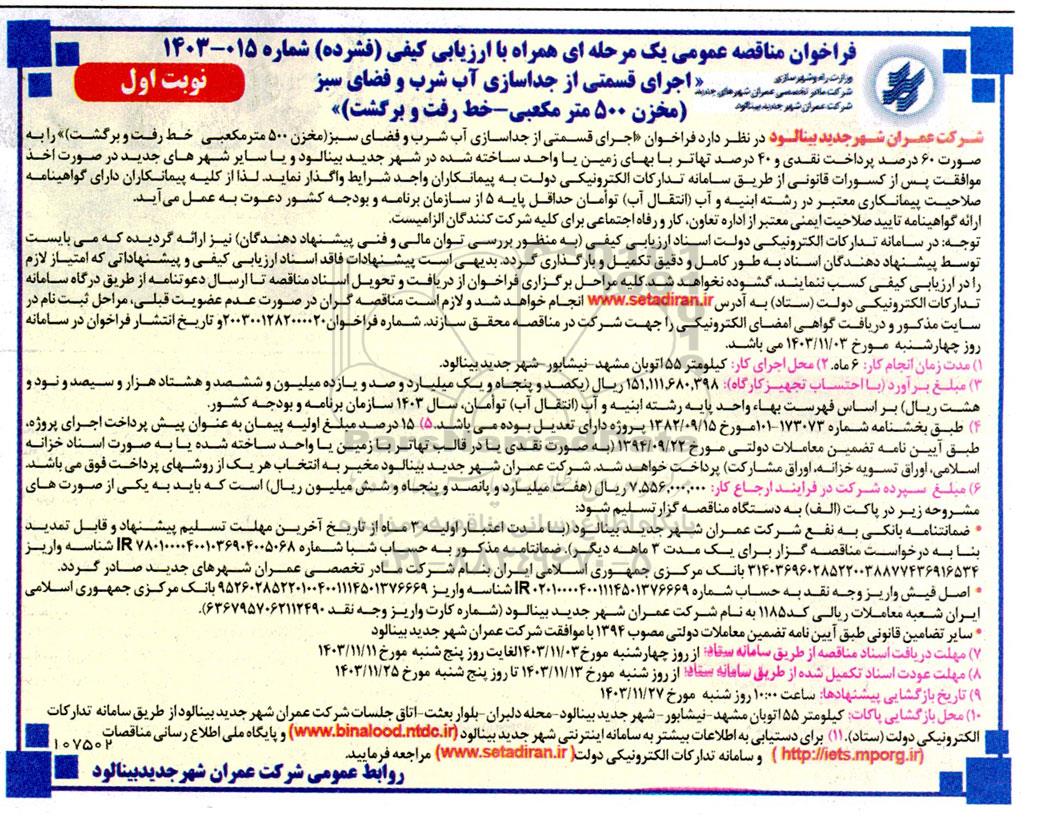 فراخوان مناقصه عمومی یک مرحله ای همراه با ارزیابی کیفی (فشرده) شماره ۰۱۵-۱۴۰۳
وزارت راه و شهرسازی
شرکت مادر تخصصی عمران شهرهای جدید
شرکت عمران شهر جدید بینالود
«اجرای قسمتی از جداسازی آب شرب و فضای سبز
(مخزن ۵۰۰ متر مکعبی-خط رفت و برگشت)»
نوبت اول
شرکت عمران شهر جدید بینالود در نظر دارد فراخوان «اجرای قسمتی از جداسازی آب شرب و فضای سبز(مخزن ۵۰۰ مترمکعبی خط رفت و برگشت)» را به
صورت ۶۰ درصد پرداخت نقدی و ۴۰ درصد تهاتر با بهای زمین یا واحد ساخته شده در شهر جدید بینالود و یا سایر شهر های جدید در صورت اخذ
موافقت پس از کسورات قانونی از طریق سامانه تدارکات الکترونیکی دولت به پیمانکاران واجد شرایط واگذار نماید. لذا از کلیه پیمانکاران دارای گواهینامه
صلاحیت پیمانکاری معتبر در رشته ابنیه و آب (انتقال آب) توأمان حداقل پایه ۵ از سازمان برنامه و بودجه کشور دعوت به عمل می آید.
ارائه گواهینامه تایید صلاحیت ایمنی معتبر از اداره تعاون، کار و رفاه اجتماعی برای کلیه شرکت کنندگان الزامیست.
توجه: در سامانه تدارکات الکترونیکی دولت اسناد ارزیابی کیفی (به منظور بررسی توان مالی و فنی پیشنهاد دهندگان) نیز ارائه گردیده که می بایست
توسط پیشنهاد دهندگان اسناد به طور کامل و دقیق تکمیل و بارگذاری گردد. بدیهی است پیشنهادات فاقد اسناد ارزیابی کیفی و پیشنهاداتی که امتیاز لازم
را در ارزیابی کیفی کسب ننمایند، گشوده نخواهد شد. کلیه مراحل برگزاری فراخوان از دریافت و تحویل اسناد مناقصه تا ارسال دعوتنامه از طریق درگاه سامانه
تدارکات الکترونیکی دولت (ستاد) به آدرس www.setadiran.ir انجام خواهد شد و لازم است مناقصه گران در صورت عدم عضویت قبلی، مراحل ثبت نام در
سایت مذکور و دریافت گواهی امضای الکترونیکی را جهت شرکت در مناقصه محقق سازند. شماره فراخوان ۲۰۰۳۰۰۱۲۸۲۰۰۰۰۲۰ و تاریخ انتشار فراخوان در سامانه
روز چهارشنبه مورخ ۱۴۰۳/۱۱/۰۳ می باشد.
۱) مدت زمان انجام کار: ۶ ماه. ۲) محل اجرای کار: کیلومتر ۵۵ اتوبان مشهد-نیشابور- شهر جدید بینالود.
۳) مبلغ برآورد (با احتساب تجهیز کارگاه): ۱۵۱,۱۱۱,۶۸۰,۳۹۸ ریال (یکصد و پنجاه و یک میلیارد و صد و یازده میلیون و ششصد و هشتاد هزار و سیصد و نود و
هشت ریال) بر اساس فهرست بهاء واحد پایه رشته ابنیه و آب (انتقال آب) توأمان، سال ۱۴۰۳ سازمان برنامه و بودجه کشور.
۴) طبق بخشنامه شماره ۱۷۳۰۷۳-۱۰۱مورخ ۱۳۸۲/۰۹/۱۵ پروژه دارای تعدیل بوده می باشد. ۵) ۱۵ درصد مبلغ اولیه پیمان به عنوان پیش پرداخت اجرای پروژه،
طبق آیین نامه تضمین معاملات دولتی مورخ ۱۳۹۴/۰۹/۲۲ (به صورت نقدی یا در قالب تهاتر با زمین یا واحد ساخته شده یا به صورت اسناد خزانه
اسلامی، اوراق تسویه خزانه، اوراق مشارکت) پرداخت خواهد شد. شرکت عمران شهر جدید بینالود مخیر به انتخاب هر یک از روشهای پرداخت فوق می باشد.
۶) مبلغ سپرده شرکت در فرایند ارجاع کار: ۷,۵۵۶,۰۰۰,۰۰۰ ریال (هفت میلیارد و پانصد و پنجاه و شش میلیون ریال) است که باید به یکی از صورت های
مشروحه زیر در پاکت (الف) به دستگاه مناقصه گزار تسلیم شود:
• ضمانتنامه بانکی به نفع شرکت عمران شهر جدید بینالود (با مدت اعتبار اولیه ۳ ماه از تاریخ آخرین مهلت تسلیم پیشنهاد و قابل تمدید
بنا به درخواست مناقصه گزار برای یک مدت ۳ ماهه دیگر). ضمانتنامه مذکور به حساب شبا شماره IR ۷۸۰۱۰۰۰۰۴۰۰۱۰۳۶۹۰۴۰۰۵۰۶۸ شناسه واریز
۳۱۴۰۳۶۹۶۰۲۸۵۲۲۰۰۳۸۸۷۷۴۳۶۹۱۶۵۳۴ بانک مرکزی جمهوری اسلامی ایران بنام شرکت مادر تخصصی عمران شهرهای جدید صادر گردد.
• اصل فیش واریز وجه نقد به حساب شماره IR۰۲۰۱۰۰۰۰۴۰۰۱۱۱۴۵۰۱۳۷۶۶۶۹ شناسه واریز ۹۵۲۶۰۲۸۵۲۲۰۱۰۰۴۰۰۱۱۱۴۵۰۱۳۷۶۶۶۹ بانک مرکزی جمهوری اسلامی
ایران شعبه معاملات ریالی کد۱۱۸۵ به نام شرکت عمران شهر جدید بینالود (شماره کارت واریز وجه نقد ۶۳۶۷۹۵۷۰۶۲۱۱۲۴۹۰).
• سایر تضامین قانونی طبق آیین نامه تضمین معاملات دولتی مصوب ۱۳۹۴ با موافقت شرکت عمران شهر جدید بینالود
۷) مهلت دریافت اسناد مناقصه از طریق سامانه ستاد: از روز چهارشنبه مورخ ۱۴۰۳/۱۱/۰۳ لغایت روز پنج شنبه مورخ ۱۴۰۳/۱۱/۱۱
۸) مهلت عودت اسناد تکمیل شده از طریق سامانه ستاد: از روز شنبه مورخ ۱۴۰۳/۱۱/۱۳ تا روز پنج شنبه مورخ ۱۴۰۳/۱۱/۲۵
۹) تاریخ بازگشایی پیشنهادها: ساعت ۱۰:۰۰ روز شنبه مورخ ۱۴۰۳/۱۱/۲۷
۱۰) محل بازگشایی پاکات: کیلومتر ۵۵ اتوبان مشهد-نیشابور- شهر جدید بینالود-محله دلبران-بلوار بعثت-اتاق جلسات شرکت عمران شهر جدید بینالود از طریق سامانه تدارکات
الکترونیکی دولت (ستاد). ۱۱) برای دستیابی به اطلاعات بیشتر به سامانه اینترنتی شهر جدید بینالود (www.binalood.ntdc.ir) و پایگاه ملی اطلاع رسانی مناقصات
(http://iets.mporg.ir) و سامانه تدارکات الکترونیکی دولت( www.setadiran.ir) مراجعه فرمایید.
۱۰۷۵۰۲
روابط عمومی شرکت عمران شهر جدید بینالود
پایگاه اطلاع رسانی مناقصه و مزایده
۰۲۱-۸۸۳۴۹۶۷۰-۵